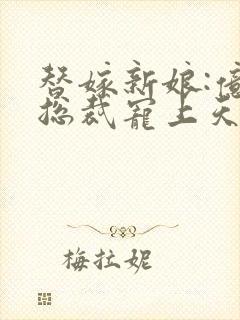 替嫁新娘:
总裁宠上天
梅拉妮